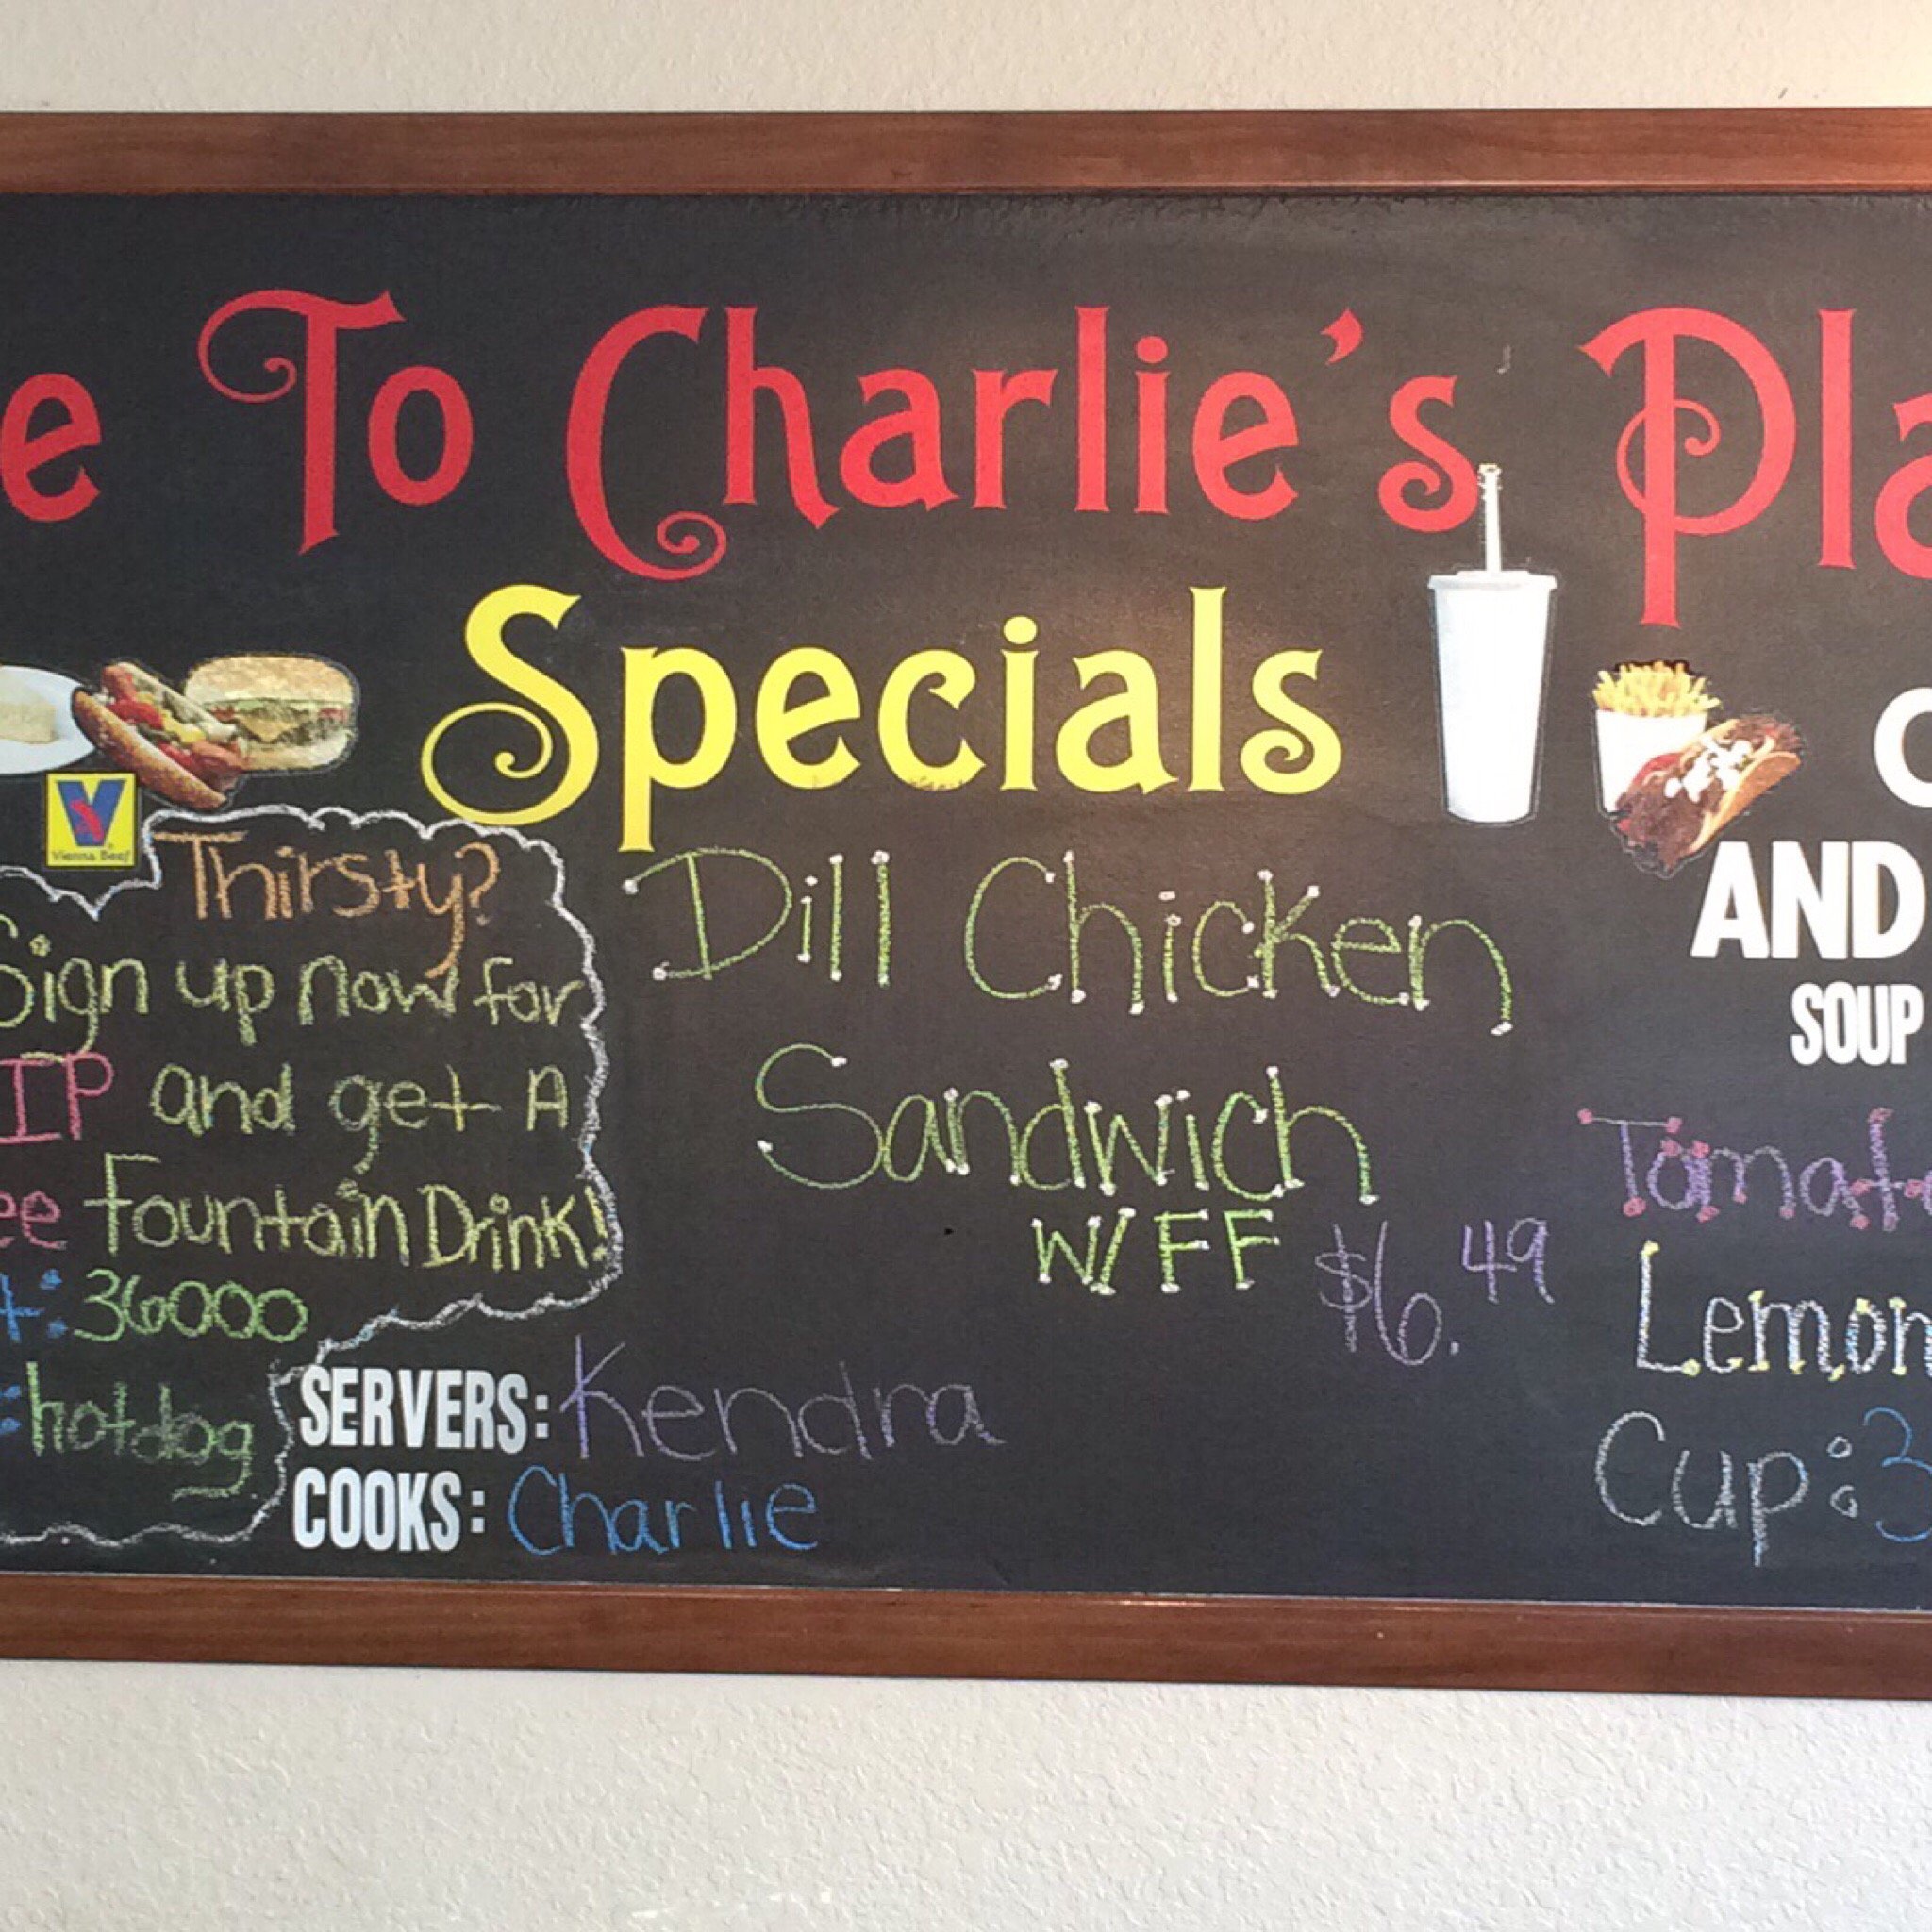 e To Charlie's Pla
Specials
Vienna Beef
Thirsty?
Sign up now for
IP and get A
ee Fountain Drink!
t: 36000
: hotdog
Dill Chicken
Sandwich
W/ FF $6.49
SERVERS: Kendra
COOKS: Charlie
AND
SOUP
Tomat
Lemon
Cup: 3